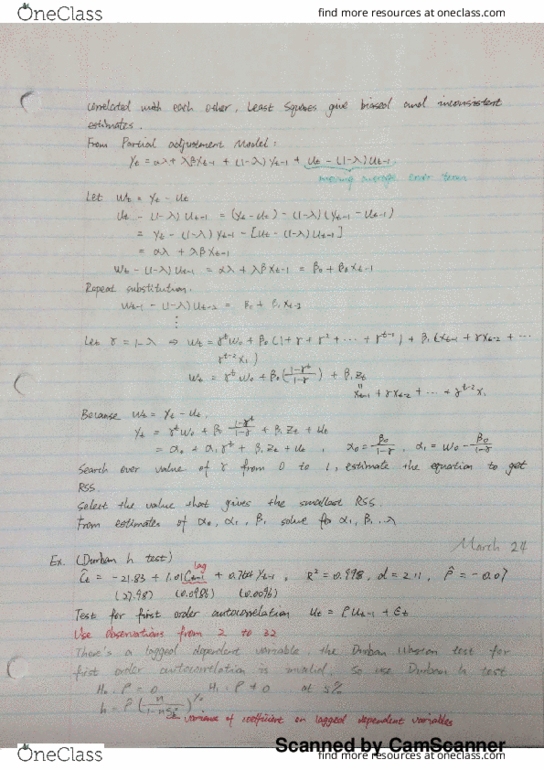 OneClass
find more resources at oneclass.com
correlated with each other, Least Squares give biased and inconsistent
estimates.
From Partial adjustment Model:
Yt = αλ + λβXt-1 + (1-λ)Yt-1 + Ut - (1-λ)Ut-1
moving average error term
Let Wt = Yt - Ut
Ut - (1-λ)Ut-1 = (Yt - Ut) - (1-λ)(Yt-1 - Ut-1)
= Yt - (1-λ)Yt-1 - [Ut - (1-λ)Ut-1]
= αλ + λβXt-1
Wt - (1-λ)Ut-1 = αλ + λβXt-1 = β0 + β0Xt-1
Repeat substitution.
Wt-1 - (1-λ)Ut-2 = β0 + β1Xt-3
⋮
Let γ = 1-λ ⇒ Wt = γ^t W0 + β0(1 + γ + γ² + ⋯ + γ^t-1) + β1(Xt-1 + γXt-2 + ⋯
γ^t-2 X1)
Wt = γ^t W0 + β0(1-γ^t / 1-γ) + β1Zt
Xt-1 + γXt-2 + ⋯ + γ^t-2 X1
Because Wt = Yt - Ut.
Yt = γ^t W0 + β 1-γ^t / 1-γ + β1Zt + Ut
= α0 + α1γ^t + β1Zt + Ut, α0 = β0 / 1-γ, α1 = W0 - β0 / 1-γ
Search over value of γ from 0 to 1, estimate the equation to get
RSS.
Select the value that gives the smallest RSS.
From estimates of α0, α1, β1 solve for α1, β1 .. λ
March 24
Ex. (Durban h test)
lag
Ĉt = -21.83 + 1.01Ct-1 + 0.766Yt-1, R² = 0.998, d = 2.11, ρ̂ = -0.07
(27.98) (0.0986) (0.0096)
Test for first order autocorrelation Ut = ρUt-1 + εt
Use observations from 2 to 32
There's a lagged dependent variable, the Durban Watson test for
first order autocorrelation is invalid, so use Durban h test
H0: ρ = 0 H1: ρ ≠ 0 at 5%
h = ρ(n / 1-nS²)^½
variance of coefficient on lagged dependent variables
Scanned by CamScanner
OneClass
find more resources at oneclass.com